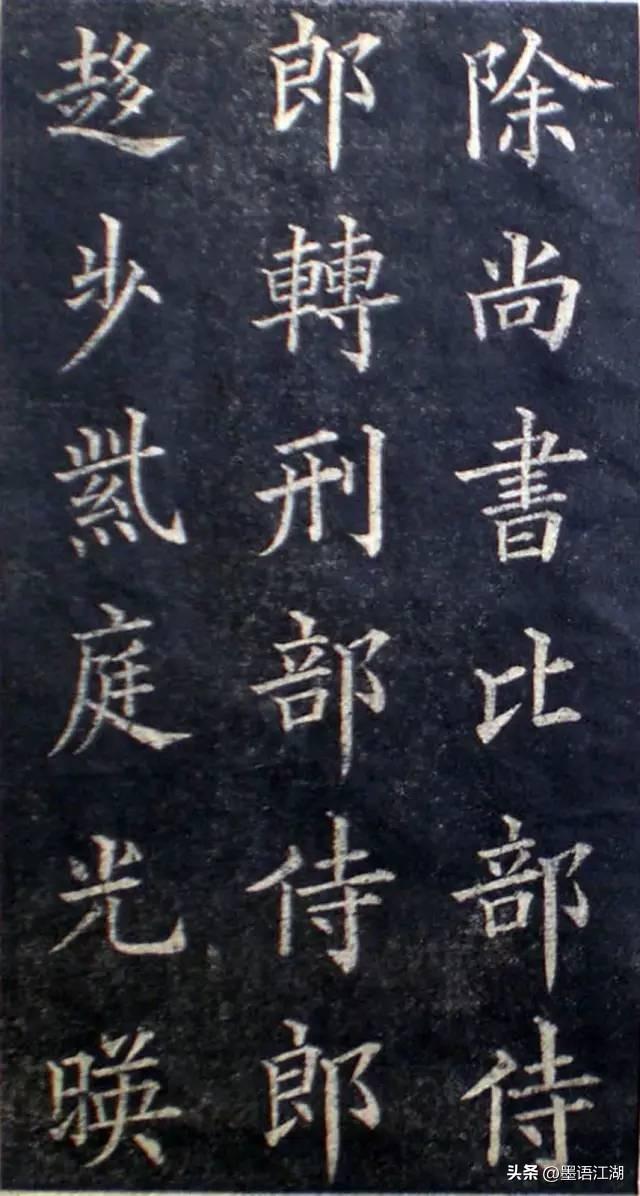 除尚書比部侍
郎轉刑部侍郎
趍步紫庭光暎
头条 @墨语江湖